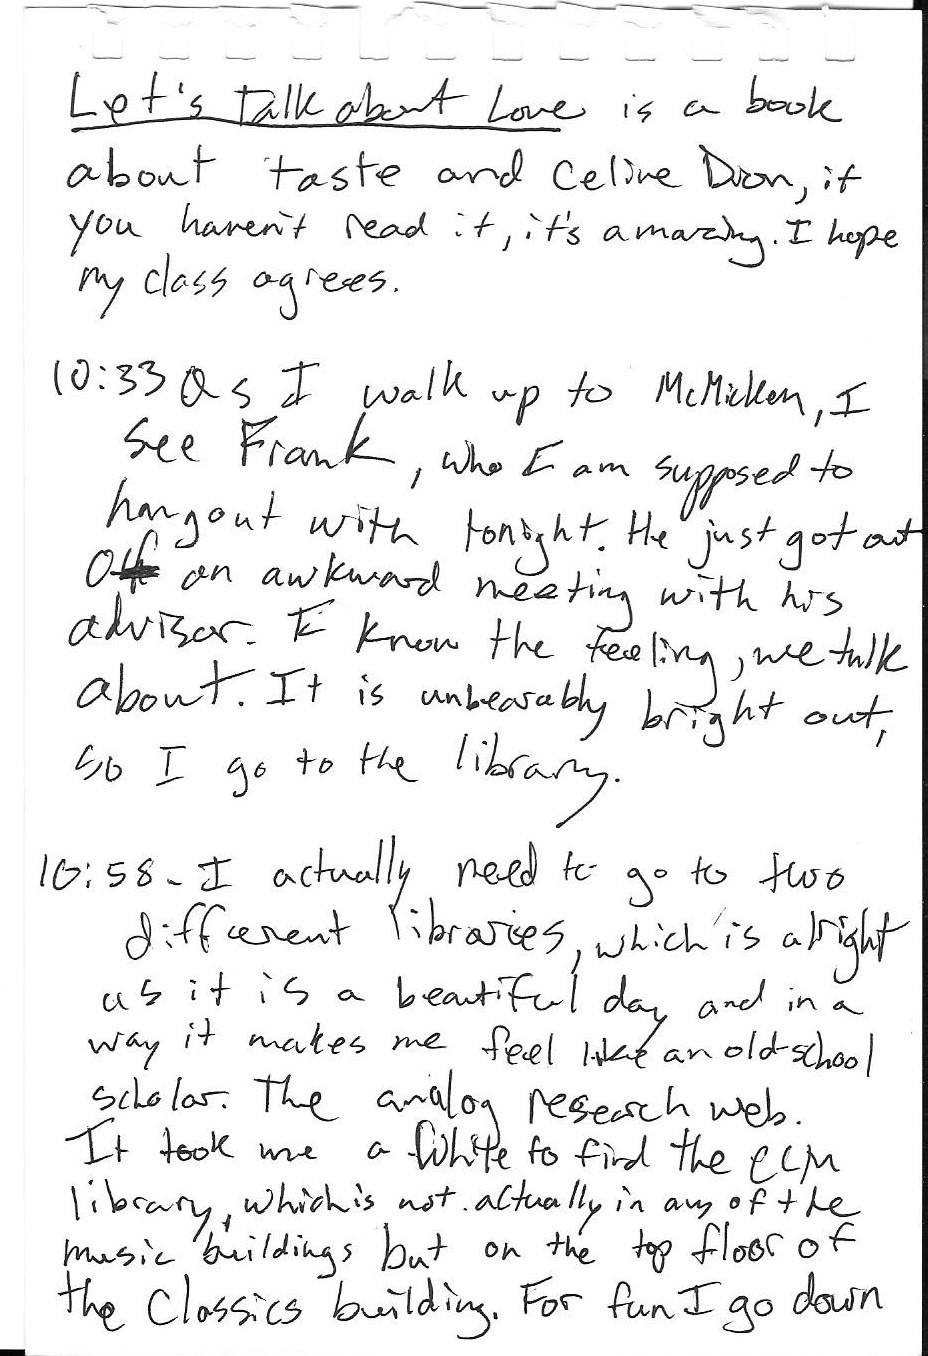 Let's Talk about Love is a book
about taste and Celine Dion, if
you haven't read it, it's amazing. I hope
my class agrees.
10:33 As I walk up to McMicken, I
see Frank, who I am supposed to
hangout with tonight. He just got out
of an awkward meeting with his
advisor. I know the feeling, we talk
about. It is unbearably bright out,
so I go to the library.
10:58 - I actually need to go to two
different libraries, which is alright
as it is a beautiful day and in a
way it makes me feel like an old-school
scholar. The analog research web.
It took me a while to find the CCM
library, which is not actually in any of the
music buildings but on the top floor of
the Classics building. For fun I go down